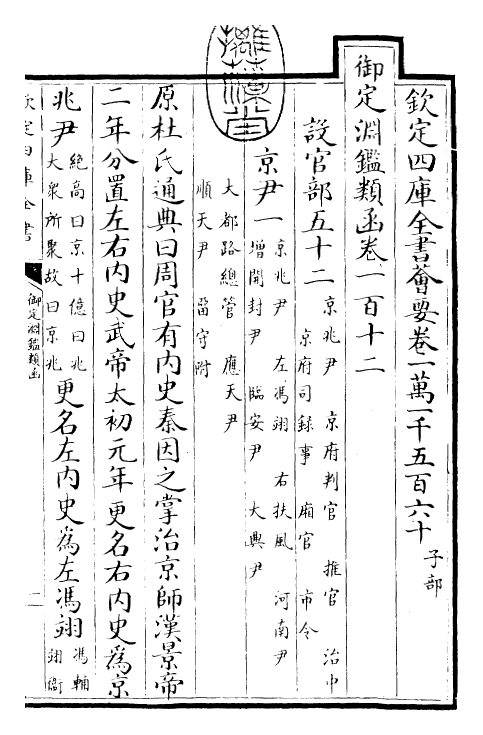 摛藻堂
欽定四庫全書薈要卷一萬一千五百六十 子部
御定淵鑑類函卷一百十二
設官部五十二 京兆尹 京府判官 推官 治中
京府司録事 廂官 市令
京尹一 京兆尹 左馮翊 右扶風 河南尹
增開封尹 臨安尹 大興尹
大都路總管 應天尹
順天尹 留守附
原杜氏通典曰周官有内史秦因之掌治京師漢景帝
二年分置左右内史武帝太初元年更名右内史為京
兆尹 絶高曰京十億曰兆 大衆所聚故曰京兆 更名左内史為左馮翊 馮輔 翊衛
欽定四庫全書
御定淵鑑類函